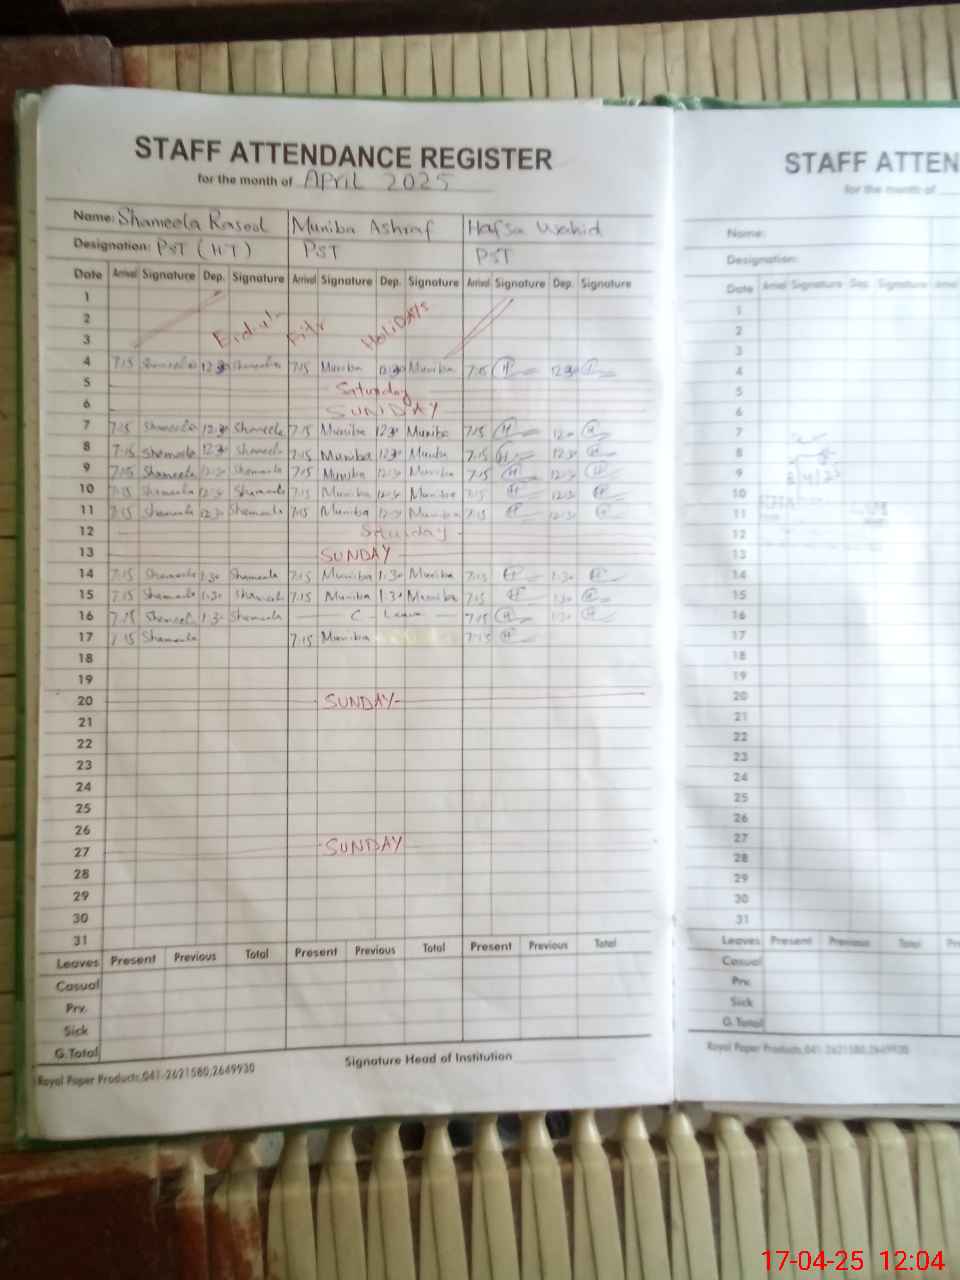 STAFF ATTENDANCE REGISTER
for the month of APRIL 2025
Name: Shameela Rasool Muniba Ashraf Hafsa Wahid
Designation: PST (HT) PST PST
Date Arrival Signature Dep. Signature Arrival Signature Dep. Signature Arrival Signature Dep. Signature
1
2 Eid-ul- Fitr HOLIDAYS
3
4 7:15 Shameela 12:30 Shameela 7:15 Muniba 12:30 Muniba 7:15 H 12:30
5 Saturday
6 SUNDAY
7 7:15 Shameela 12:30 Shameela 7:15 Muniba 12:30 Muniba 7:15 H 12:30 H
8 7:15 Shameela 12:30 Shameela 7:15 Muniba 12:30 Muniba 7:15 H 12:30 H
9 7:15 Shameela 12:30 Shameela 7:15 Muniba 12:30 Muniba 7:15 H 12:30 H
10 7:15 Shameela 12:30 Shameela 7:15 Muniba 12:30 Muniba 7:15 H 12:30 H
11 7:15 Shameela 12:30 Shameela 7:15 Muniba 12:30 Muniba 7:15 H 12:30 H
12 Saturday
13 SUNDAY
14 7:15 Shameela 1:30 Shameela 7:15 Muniba 1:30 Muniba 7:15 H 1:30 H
15 7:15 Shameela 1:30 Shameela 7:15 Muniba 1:30 Muniba 7:15 H 1:30 H
16 7:15 Shameela 1:30 Shameela C Leave 7:15 H 1:30 H
17 7:15 Shameela 7:15 Muniba 7:15 H
18
19
20 SUNDAY
21
22
23
24
25
26
27 SUNDAY
28
29
30
31
Leaves Present Previous Total Present Previous Total Present Previous Total
Casual
Prv.
Sick
G.Total
Signature Head of Institution
Royal Paper Products,041-2621580,2649930
STAFF ATTEN
for the month of
Name:
Designation:
Date Arrival Signature Dep. Signature
1
2
3
4
5
6
7
8
9
10
11
12
13
14
15
16
17
18
19
20
21
22
23
24
25
26
27
28
29
30
31
Leaves Present Previous Total
Casual
Prv.
Sick
G.Total
Royal Paper Products,041-2621580,2649930
17-04-25 12:04